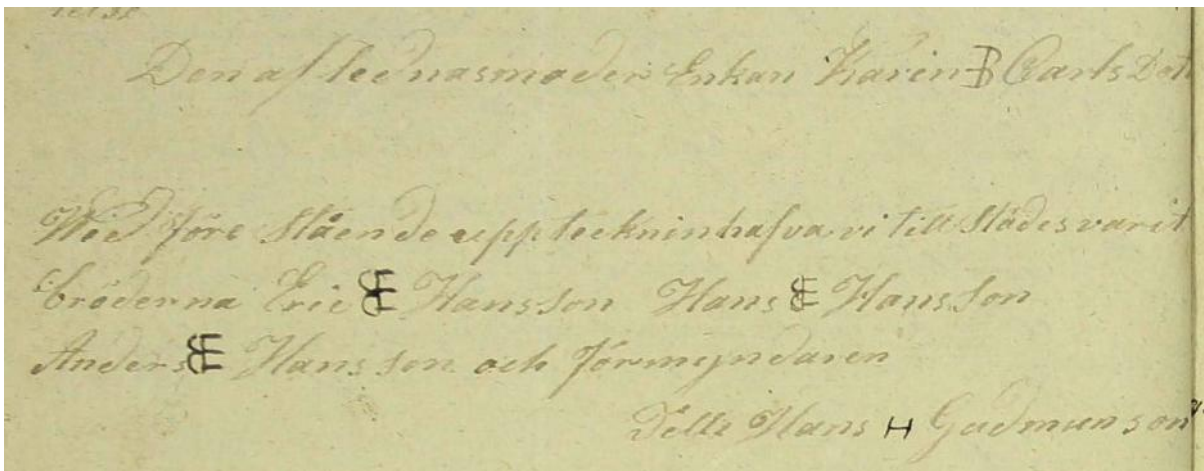 Den aflednasmoder Enkan Karin B Carls Dot
Wid före Stående uppteckninhafva vi till Städes varit
bröderna Eric E Hansson Hans E Hansson
Anders E Hansson och förmyndaren
Hans H Gudmunson